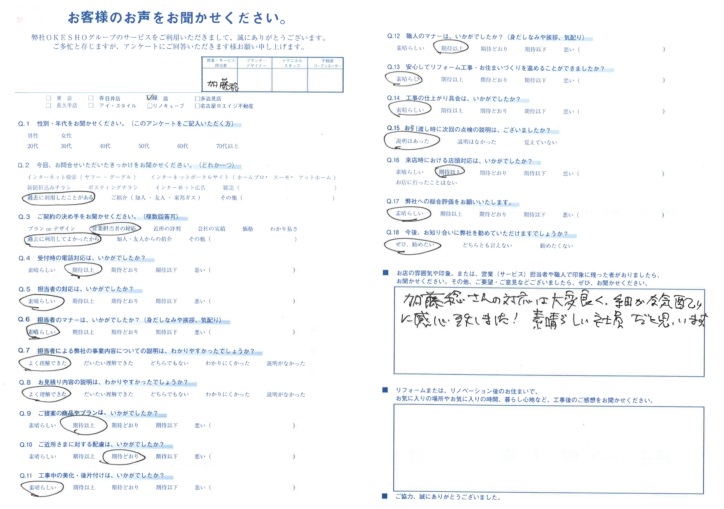 お客様のお声をお聞かせください。
弊社OKESHOグループのサービスをご利用いただきまして、誠にありがとうございます。
ご多忙と存じますが、アンケートにご回答いただきます様お願い申し上げます。
加藤聡
Q.1 性別・年代をお聞かせください。(このアンケートをご記入いただく方)
男性 女性
20代 30代 40代 50代 60代 70代以上
Q.2 今回、お問合せいただいたきっかけをお聞かせください。(どれか一つ)
インターネット検索(ヤフー・グーグル) インターネットポータルサイト(ホームプロ・スーモ・アットホーム)
新聞折込みチラシ ポスティングチラシ インターネット広告 雑誌( )
過去に利用したことがある ご紹介(知人・友人・東邦ガス) その他( )
Q.3 ご契約の決め手をお聞かせください。(複数回答可)
プラン or デザイン 営業担当者の対応 近所の評判 会社の実績 価格 わかり易さ
過去に利用してよかったから 知人・友人からの紹介 その他( )
Q.4 受付時の電話対応は、いかがでしたか?
素晴らしい 期待以上 期待どおり 期待以下 悪い( )
Q.5 担当者の対応は、いかがでしたか?
素晴らしい 期待以上 期待どおり 期待以下 悪い( )
Q.6 担当者のマナーは、いかがでしたか?(身だしなみや挨拶、気配り)
素晴らしい 期待以上 期待どおり 期待以下 悪い( )
Q.7 担当者による弊社の事業内容についての説明は、わかりやすかったでしょうか?
よく理解できた だいたい理解できた どちらでもない わかりにくかった 説明がなかった
Q.8 お見積り内容の説明は、わかりやすかったでしょうか?
よく理解できた だいたい理解できた どちらでもない わかりにくかった 説明がなかった
Q.9 ご提案の商品やプランは、いかがでしたか?
素晴らしい 期待以上 期待どおり 期待以下 悪い( )
Q.10 ご近所さまに対する配慮は、いかがでしたか?
素晴らしい 期待以上 期待どおり 期待以下 悪い( )
Q.11 工事中の美化・後片付けは、いかがでしたか?
素晴らしい 期待以上 期待どおり 期待以下 悪い( )
Q.12 職人のマナーは、いかがでしたか?(身だしなみや挨拶、気配り)
素晴らしい 期待以上 期待どおり 期待以下 悪い( )
Q.13 安心してリフォーム工事・お住まいづくりを進めることができましたか?
素晴らしい 期待以上 期待どおり 期待以下 悪い( )
Q.14 工事の仕上がり具合は、いかがでしたか?
素晴らしい 期待以上 期待どおり 期待以下 悪い( )
Q.15 お引渡し時に次回の点検の説明は、ございましたか?
説明はあった 説明はなかった 覚えていない
Q.16 来店時における店頭対応は、いかがでしたか?
素晴らしい 期待以上 期待どおり 期待以下 悪い( )
お店に行ったことはない
Q.17 弊社への総合評価をお願いいたします。
素晴らしい 期待以上 期待どおり 期待以下 悪い( )
Q.18 今後、お知り合いに弊社を勧めていただけますでしょうか?
ぜひ、勧めたい どちらとも言えない 勧めたくない
■ お店の雰囲気や印象、または、営業(サービス)担当者や職人で印象に残った者がおりましたら、
お聞かせください。その他、ご要望・ご意見などございましたら、ぜひ、お聞かせください。
加藤聡さんの対応は大変良く、
に感心致しました! 素晴らしい社員だと思います
■ リフォームまたは、リノベーション後のお住まいで、
お気に入りの場所やお気に入りの時間、暮らし心地など、工事後のご感想をお聞かせください。
■ ご協力、誠にありがとうございました。